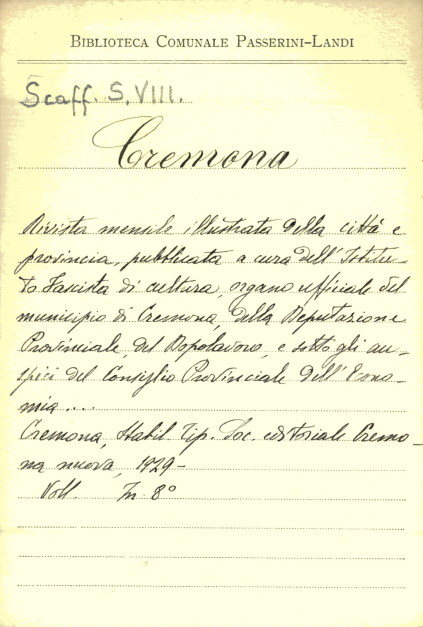 BIBLIOTECA COMUNALE PASSERINI-LANDI
Scaff. S. VIII.
Cremona
Rivista mensile illustrata della città e
provincia, pubblicata a cura dell'Istitu-
to Fascista di cultura, organo ufficiale del
municipio di Cremona, della Deputazione
Provinciale del Dopolavoro, e sotto gli au-
spici del Consiglio Provinciale dell'Econo-
mia....
Cremona, Stabil. Tip. Soc. editoriale Cremo-
na nuova, 1929-
Voll. In 8°